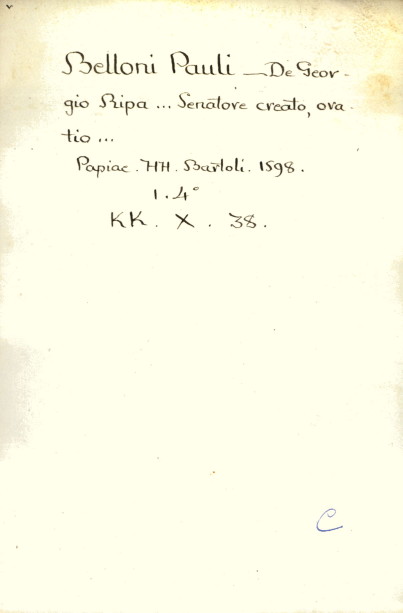 Belloni Pauli — De Geor-
gio Ripa ... Senatore creato, ora-
tio ...
Papiae. HH. Bartoli. 1598.
1. 4°
KK. X. 38.
C